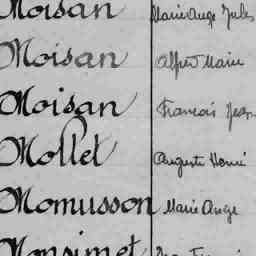 Moisan Marie Ange Jules
Moisan Alfred Marie
Moisan Francois Jean
Mollet Auguste Henri
Momusson Marie Ange
Monsimet